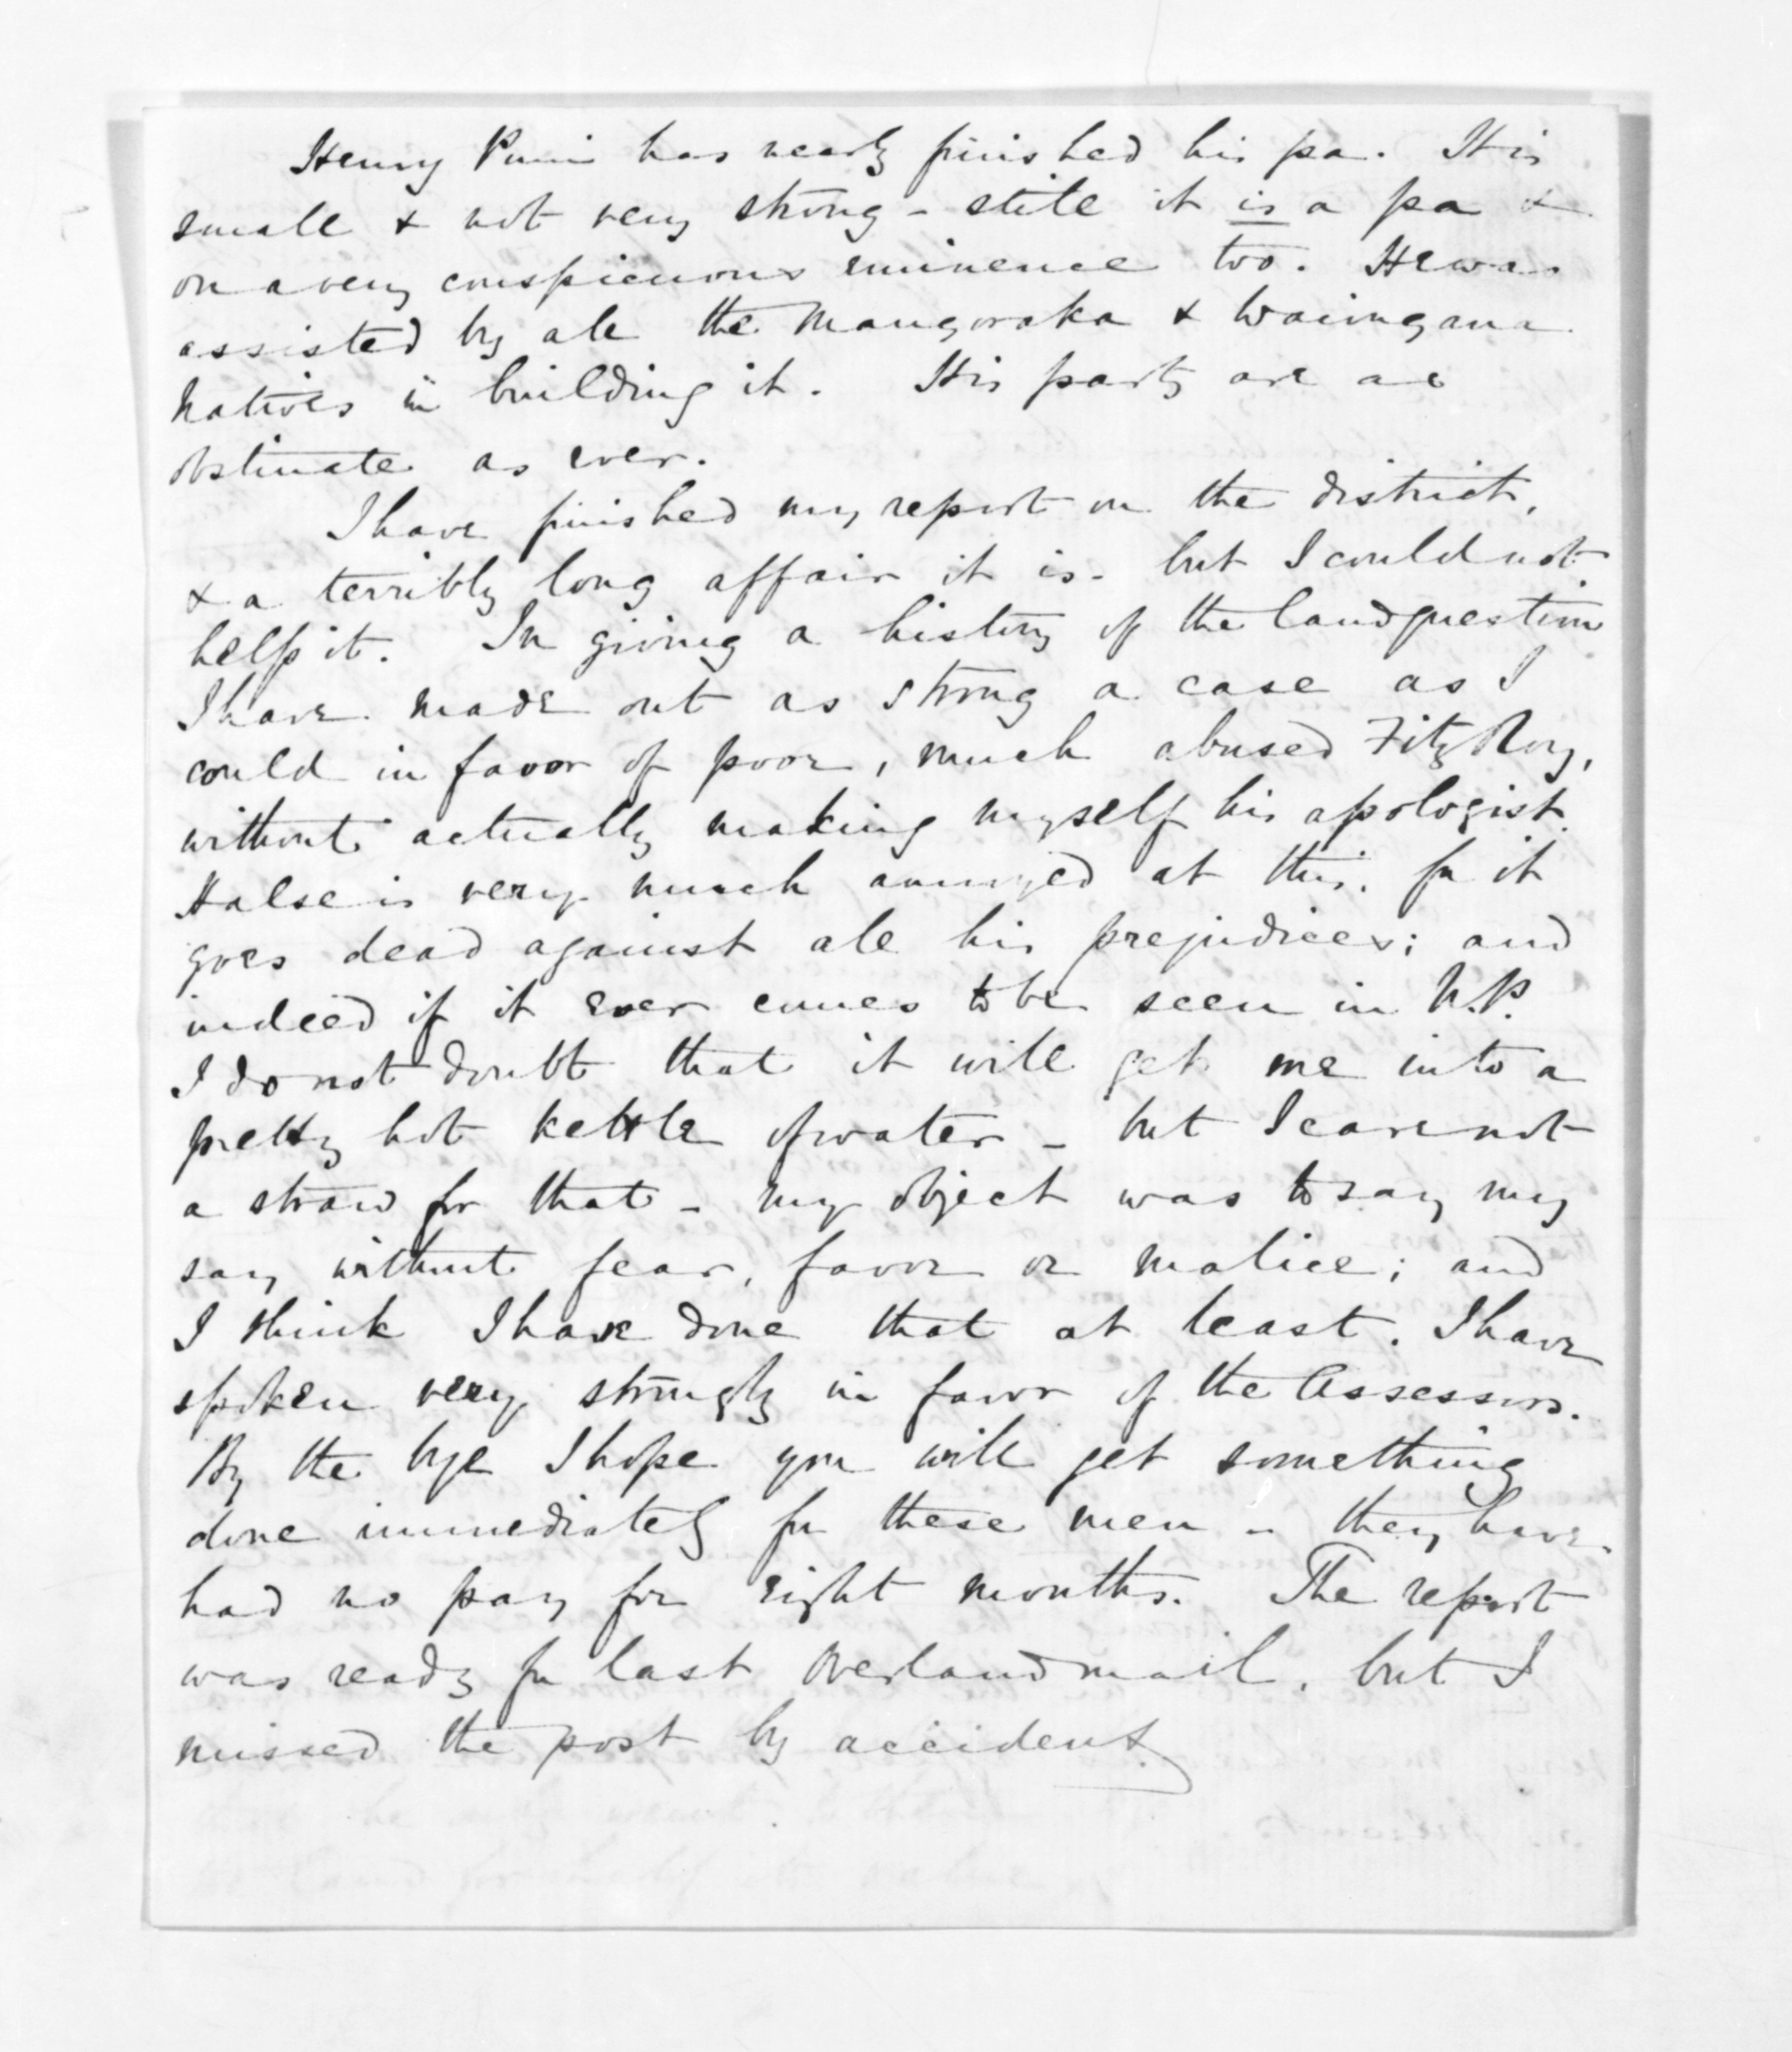 Henry Puni has nearly finished his pa. It is
small & not very strong - still it is a pa &
on a very conspicuous eminence too. He was
assisted by all the Mangoraka & Waiongana
Natives in building it. His party are as
obstinate as ever.
I have finished my report on the district,
& a terribly long affair it is - but I could not
help it. In giving a history of the land question
I have made out as strong a case as I
could in favor of poor, much abused FitzRoy,
without actually making myself his apologist.
Halse is very much annoyed at this, for it
goes dead against all his prejudices; and
indeed if it ever comes to be seen in N.P.
I do not doubt that it will get me into a
pretty hot kettle of water - but I care not
a straw for that - my object was to say my
say without fear, favor or malice; and
I think I have done that at least. I have
spoken very strongly in favor of the Assessors.
By the bye I hope you will get something
done immediately for these men - they have
had no pay for eight months. The report
was ready for last Overland mail, but I
missed the post by accident.